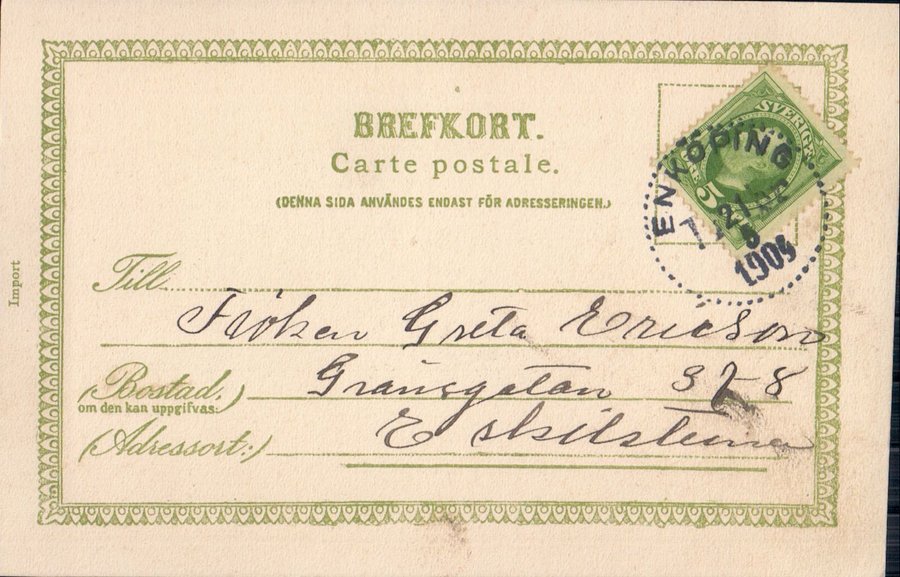 BREFKORT.
Carte postale.
(DENNA SIDA ANVÄNDES ENDAST FÖR ADRESSERINGEN.)
SVERIGE
5
ENKÖPING
21
1905
Import
Till
Fröken Greta Ericson
(Bostad,
om den kan uppgifvas:)
Gränsgatan
(Adressort:)
Eskilstuna